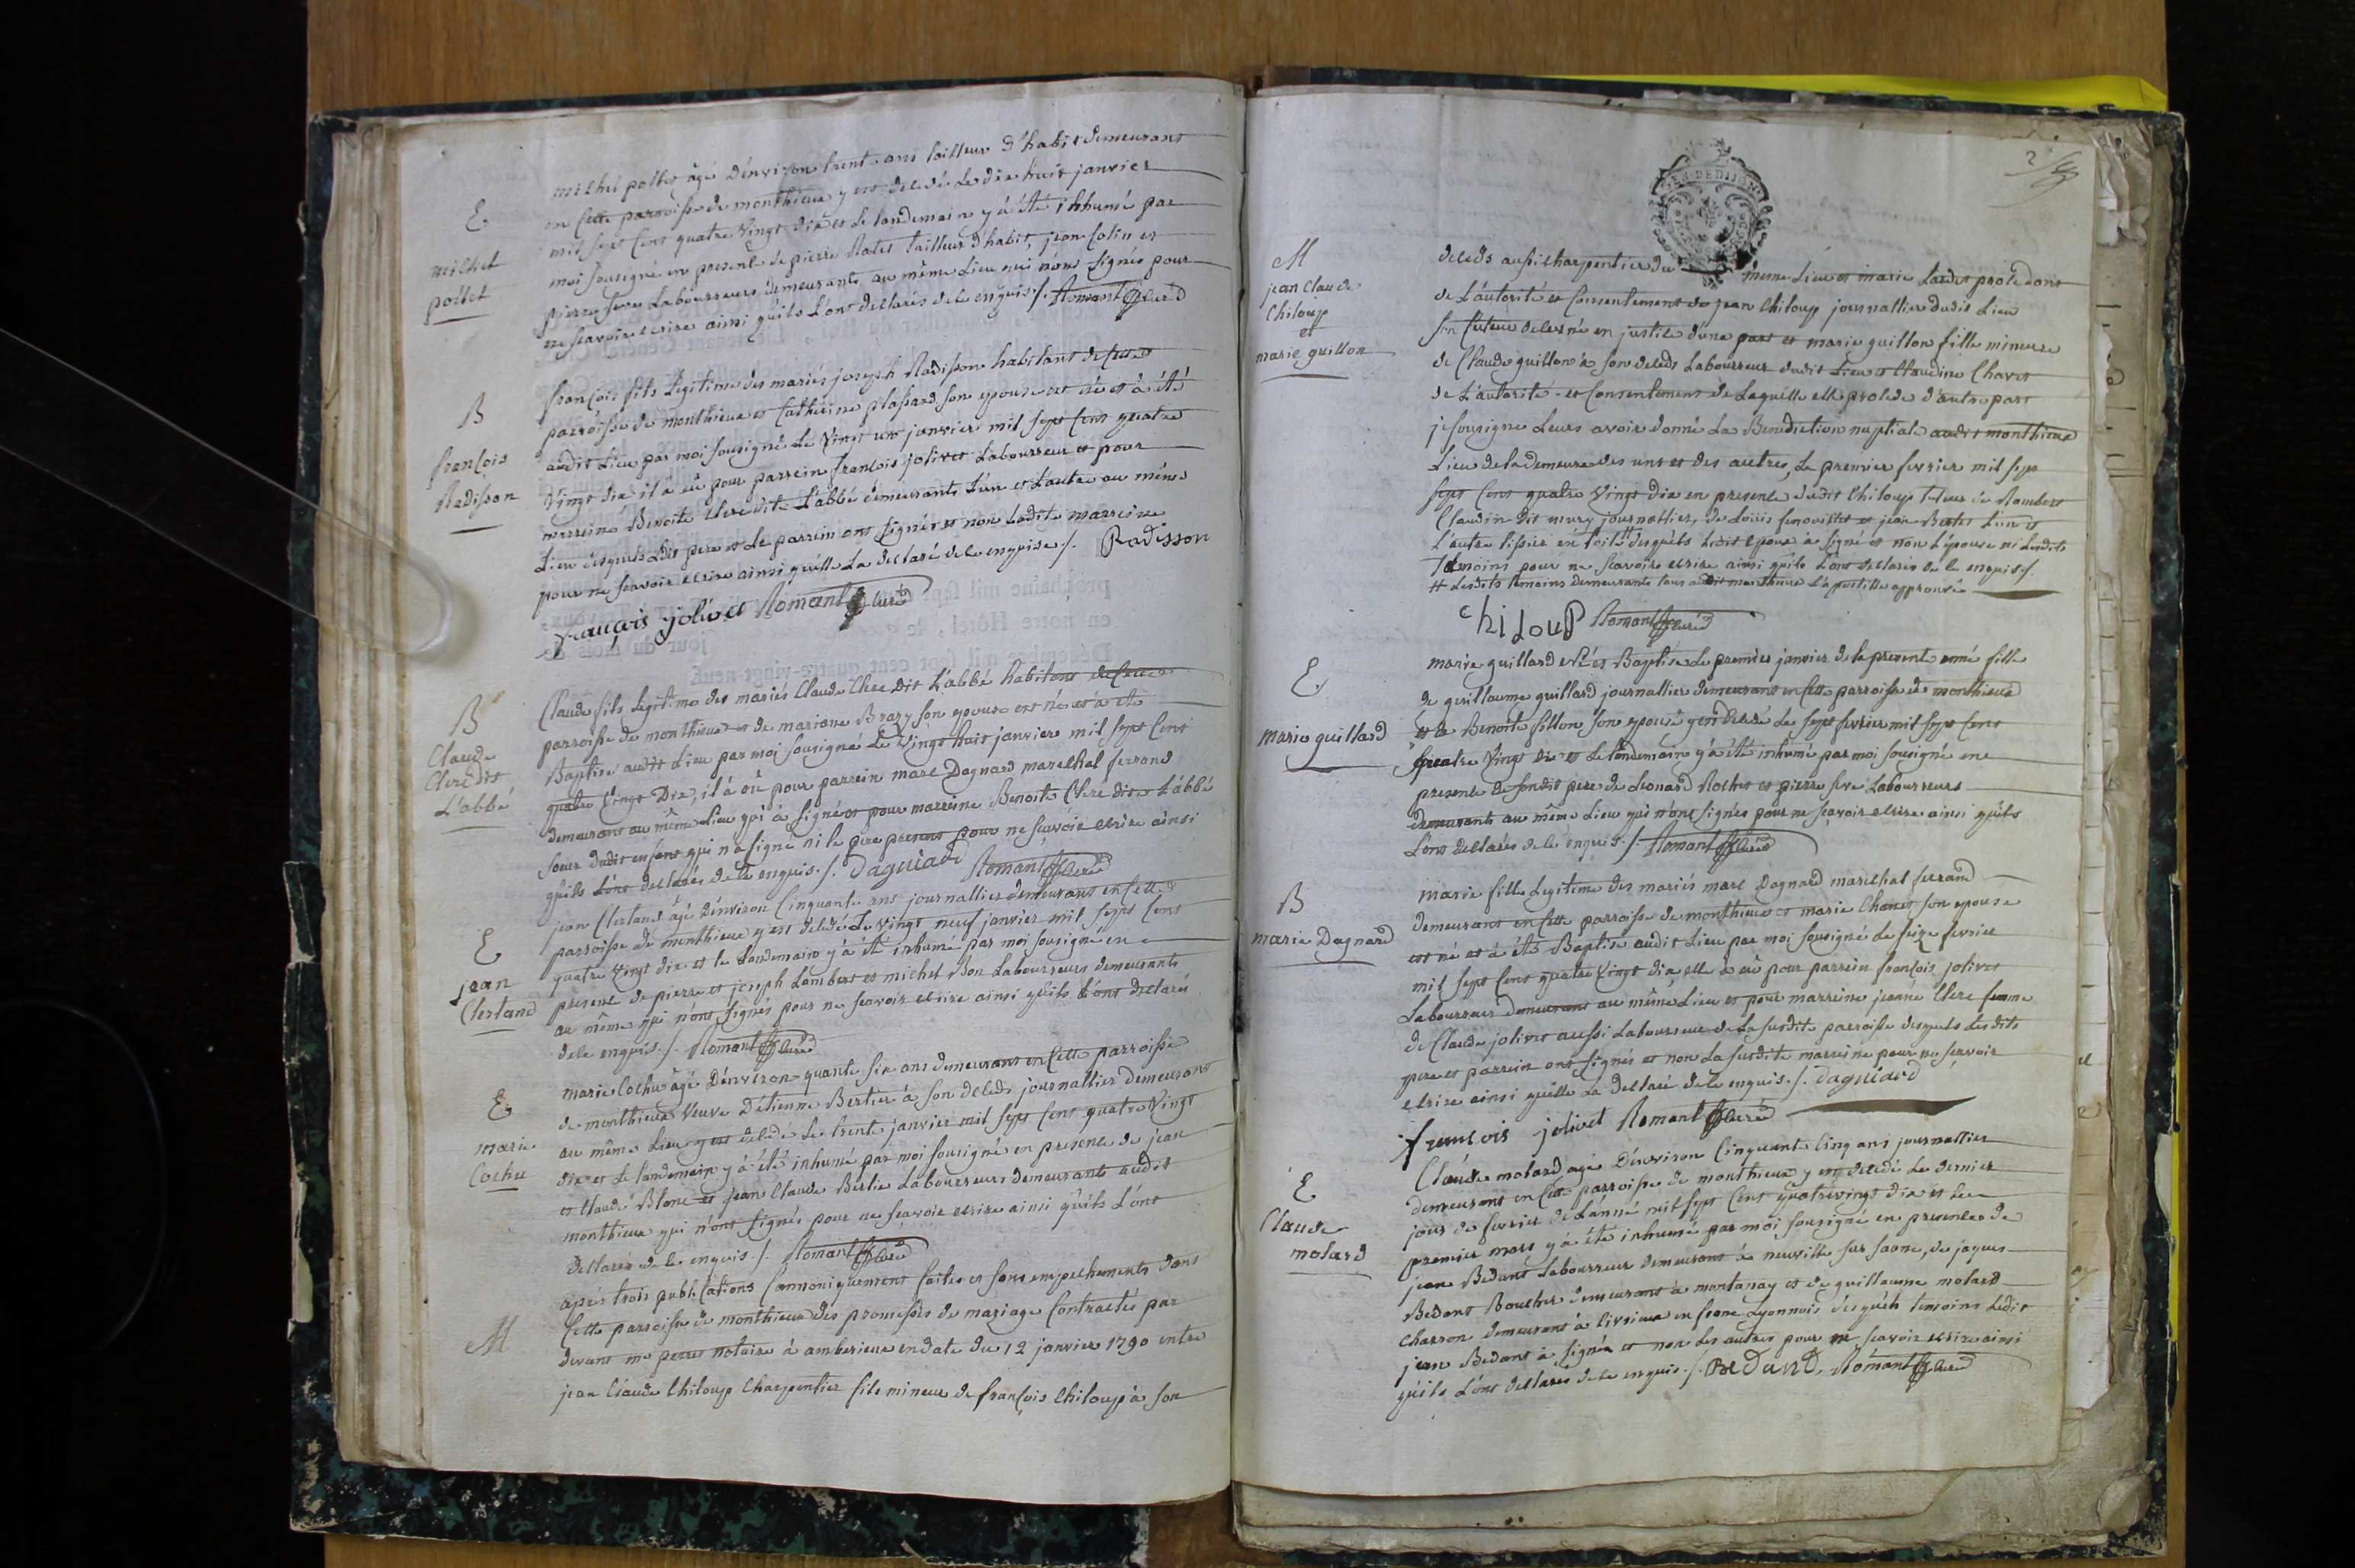 E
michel
pollet
michel pollet âgé d'énvison trente ans tailleur d'habit demeurant
en cette parroisse de monthieux y est decedé le dix huit janvier
mil sept cent quatre vingt dix et le landemain y à été inhumé par
moi sousigné en presence de pierre tailleur d'habit, jean Colin et
pierre sève Labourreurs demeurants au même Lieu qui n'ont signés pour
ne scavoir ecrire ainsi qu'ils L'ont declarés de ce enquis ./. Romant Curé
B
françois
Radisson
françois fils Legitime des mariés joseph Radisson habitant de cette
parroisse de monthieux et Catherine plassard son epouse est né et à été
audit Lieu par moi sousigné Le Vingt un janvier mil sept cent quatre
Vingt dix il à eû pour parrein françois jolivet Labourreur et pour
marreine Benoite Clerc dite L'abbé demeurants L'un et L'autre au même
Lieu desquels Ledit pere et Le parrein ont signés et non Ladite marreine
pour ne scavoir ecrire ainsi qu'elle La declaré de ce enquise ./. Radisson
françois jolivet Romant Curé
B
Claude
Clerc dit
L'abbé
Claude fils Legitime des mariés Claude Clerc dit L'abbé habitant de cette
parroisse de monthieux et de mariane Brazy son epouse est né et à été
Baptisé audit Lieu par moi sousigné Le Vingt huit janvier mil sept cent
quatre Vingt Dix, il à eû pour parrein marc Dagnard marechal ferrand
demeurant au même Lieu qui à signé et pour marreine Benoite Clerc dite L'abbé
soeur dudit enfant qui n'a signé ni le pere present pour ne scavoir ecrire ainsi
qu'ils L'ont declarés de ce enquis ./. Daguiard Romant Curé
E
jean
Clertand
jean Clertand âgé d'énvison Cinquante ans journallier demeurant en cette
parroisse de monthieux y est decedé Le vingt neuf janvier mil sept cent
quatre vingt dix et le Landemain y à été inhumé par moi sousigné en
presence de pierre et joseph Lambert et michel Bon Labourreurs demeurants
au même qui n'ont signés pour ne scavoir ecrire ainsi qu'ils L'ont declaré
de ce enquis ./. Romant Curé
E
marie
Cochu
marie Cochu âgé D'énvison quante six ans demeurant en cette parroisse
de monthieux Veuve D'étienne Bertier à son deceds journallier demeurant
au même Lieu y est decedé Le trente janvier mil sept cent quatre Vingt
dix et Le landemain y à été inhumé par moi sousigné en presence de jean
et Claude Blanc et jean Claude Bertie Labourreurs demeurants audit
monthieux qui n'ont signés pour ne scavoir ecrire ainsi qu'ils L'ont
declarés de ce enquis ./. Romant Curé
M
après trois publications Cannoniquement faites et sans empechements dans
cette parroisse de monthieux des promesses de mariage Contractés par
devant me perret notaire à amberieux en date du 12 janvier 1790 entre
jean Claude Chiloup Charpentier fils mineur de françois Chiloup à son
2
GEN DE DIJON
M
jean Claude
Chiloup
et
marie guillon
deceds aussi charpentier du même Lieu et marie Lardet procedant
de L'autorité et Consentement de jean Chiloup journallier dudit Lieu
son tuteur decerné en justice d'une part et marie guillon fille mineure
de Claude guillon à son deceds Labourreur dudit Lieu et Claudine Chavet
de L'autorité et Consentement de Laquelle elle procede d'autre part
je sousigne Leurs avoir donné La Benediction nuptiale audit monthieux
Lieu de la demeure des uns et des autres, Le premier fevrier mil sept
sept cent quatre Vingt dix en presence dudit Chiloup tuteur de Rambert
Claudin dit mury journallier, de Loüis fenouillet et jean Bertet L'un et
L'autre tissier en toile # desquels Ledit epoux à signé et non L'épouse ni Lesdits
Temoins pour ne scavoir ecrire ainsi qu'ils L'ont declarés de ce enquis ./.
# Lesdits temoins demeurants tous audit monthieux L'apostille approuvée
chiLouP Romant Curé
E
marie guillard
marie guillard né et Baptisé Le premier janvier de la presente anné fille
de guillaume guillard journallier demeurant en cette parroisse de monthieux
et de Benoite fillon son epouse y est decedé Le sept fevrier mil sept cent
quatre Vingt dix et Le landemain y à été inhumé par moi sousigné en
presence de sondit pere de Leonard Rochet et pierre sève Labourreurs
demeurants au même Lieu qui n'ont signés pour ne scavoir ecrire ainsi qu'ils
L'ont declarés de ce enquis ./. Romant Curé
B
marie Dagnard
marie fille Legitime des mariés marc Dagnard marechal ferrand
demeurant en cette parroisse de monthieux et marie Chanet son epouse
est né et à été Baptisé audit Lieu par moi sousigné Le seize fevrier
mil sept cent quatre Vingt dix elle à eû pour parrein françois jolivet
Labourreur demeurant au même Lieu et pour marreine jeanne Clerc femme
de Claude jolivet aussi Labourreur de La susdite parroisse desquels Lesdits
pere et parrein ont signés et non La susdite marreine pour ne scavoir
ecrire ainsi qu'elle La declaré de ce enquis ./. Daguiard
francois jolivet Romant Curé
E
Claude
molard
Claude molard agé D'énvison Cinquante Cinq ans journallier
demeurant en cette parroisse de monthieux y est decedé Le dernier
jour de fevrier de L'anné mil sept cent quatrevingt dix et Le
premier mars y à été inhumé par moi sousigné en presence de
jean Bedant Labourreur demeurant à neuville sur saone, de jaques
Bedant Boucher demeurant à montanay et de guillaume molard
charron demeurant à Civrieux en franc Lyonnois desquels temoins Ledit
jean Bedant à signé et non Les autres pour ne scavoir ecrire ainsi
qu'ils L'ont declarés de ce enquis ./. BEDAND, Romant Curé